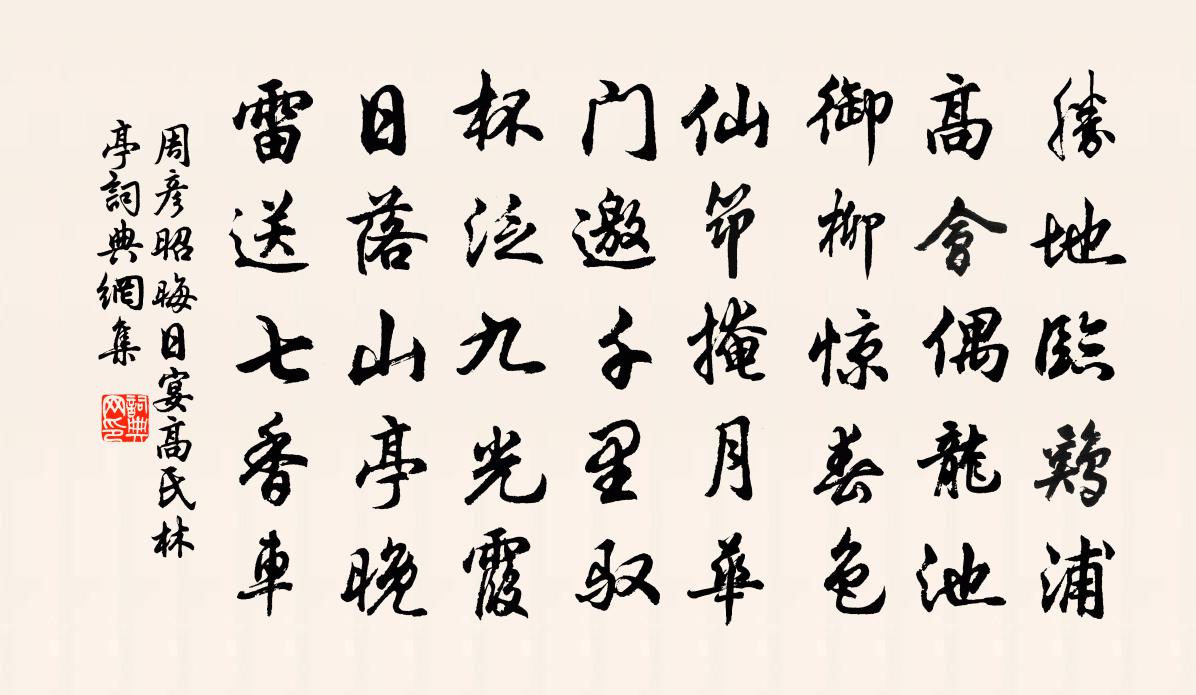 勝地臨鷄浦
高會偶龍池
御柳惊春色
仙筇掩月華
门邀千里驭
杯泛九光霞
日落山亭晚
雷送七香車
周彦昭晦日宴高氏林
亭詞典網集
詞典
网印